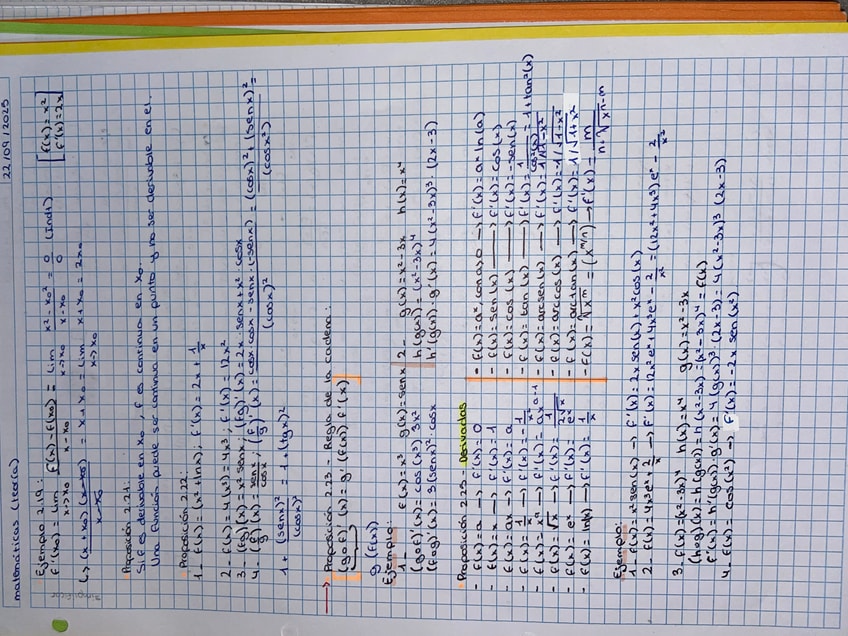 22/09/2025
matemáticas (teoría)
Ejemplo 2.19: [f(x)=x² f'(x)=2x]
f'(x₀) = lim x→x₀ f(x)-f(x₀) / x-x₀ = lim x→x₀ x²-x₀² / x-x₀ = 0/0 (Indt)
↳ (x+x₀)(x-x₀) / x-x₀ = x+x₀ = lim x→x₀ x+x₀ = 2x₀
Proposición 2.21:
Si f es derivable en x₀, f es continua en x₀.
Una función puede ser continua en un punto y no ser derivable en el.
Proposición 2.22:
1- f(x) = (x²+lnx); f'(x) = 2x + 1/x
2- f(x) = 4(x³) = 4x³; f'(x) = 12x²
3- (fg)(x) = x² senx; (fg)'(x) = 2x·senx + x²·cosx
4- (f/g)(x) = senx/cosx; (f/g)'(x) = cosx·cosx-senx·(-senx) / (cosx)² = (cosx)²+(senx)² / (cosx²) =
1 + (senx)²/(cosx)² = 1 + (tgx)²
→ Proposición 2.23 - Regla de la cadena:
[(g∘f)'(x) = g'(f(x)) f'(x)]
g(f(x))
Ejemplo:
1- f(x)=x³ g(x)=senx
(g∘f)'(x) = cos(x³) 3x²
(f∘g)'(x) = 3(senx)²·cosx
2- g(x)=x²-3x h(x)=x⁴
h(g(x)) = (x²-3x)⁴
h'(g(x))·g'(x) = 4(x²-3x)³·(2x-3)
Proposición 2.25 - Derivadas
- f(x)=a → f'(x)=0
- f(x)=x → f'(x)=1
- f(x)=ax → f'(x)=a
- f(x)=1/x → f'(x)=-1/x²
- f(x)=xᵃ → f'(x)=axᵃ⁻¹
- f(x)=√x → f'(x)=1/2√x
- f(x)=eˣ → f'(x)=eˣ
- f(x)=ln(x) → f'(x)=1/x
- f(x)=aˣ con a>0 → f'(x)=aˣ ln(a)
- f(x)=sen(x) → f'(x)=cos(x)
- f(x)=cos(x) → f'(x)=-sen(x)
- f(x)=tan(x) → f'(x)=1/cos²(x)=1+tan²(x)
- f(x)=arcsen(x) → f'(x)=1/√1-x²
- f(x)=arccos(x) → f'(x)=1/√1+x²
- f(x)=arctan(x) → f'(x)=1/√1+x²
- f(x)=ⁿ√xᵐ=(x^m/n) → f'(x)=m/n·ⁿ√xⁿ⁻ᵐ
Ejemplo:
1- f(x)=x² sen(x) → f'(x)=2x sen(x)+x² cos(x)
2- f(x)=4x³eˣ+2/x → f'(x)=12x²eˣ+4x³eˣ-2/x²=(12x²+4x³)eˣ-2/x²
3- f(x)=(x²-3x)⁴ h(x)=x⁴ g(x)=x²-3x
(h∘g)(x)=h(g(x))=h(x²-3x)=(x²-3x)⁴=f(x)
f'(x)=h'(g(x))·g'(x)=4(g(x))³(2x-3)=4(x²-3x)³(2x-3)
4- f(x)=cos(x²) → f'(x)=-2x sen(x²)